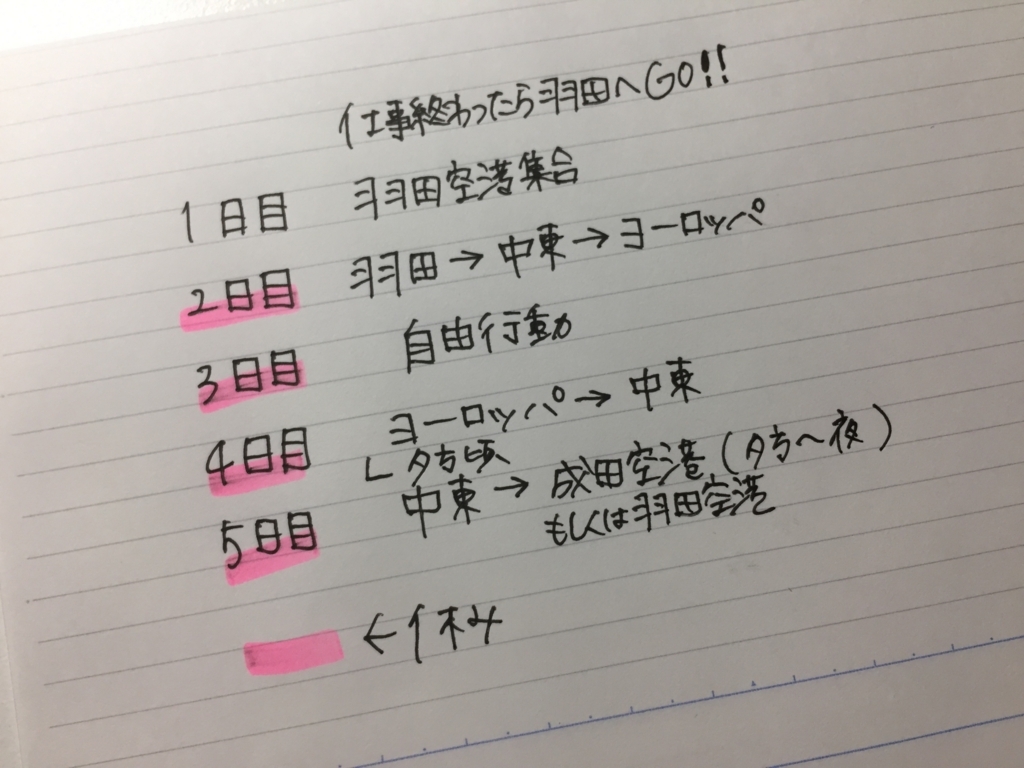 仕事終わったら羽田へGO!!
1日目 羽田空港集合
2日目 羽田→中東→ヨーロッパ
3日目 自由行動
4日目 ヨーロッパ→中東
└夕方頃
5日目 中東→成田空港(夕方〜夜)
もしくは羽田空港
←休み